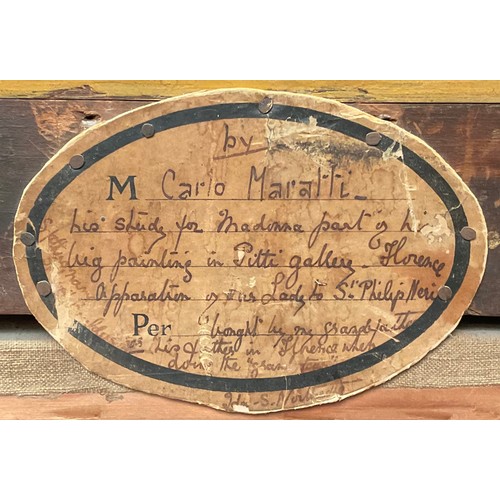 by
M Carlo Maratti
his study for Madonna part of his
big painting in Pitti gallery Florence
Apparition of our Lady to St Philip Neri
Per bought by one grandfather
or his father in Florence when
doing the "Gran Tour"
John S.